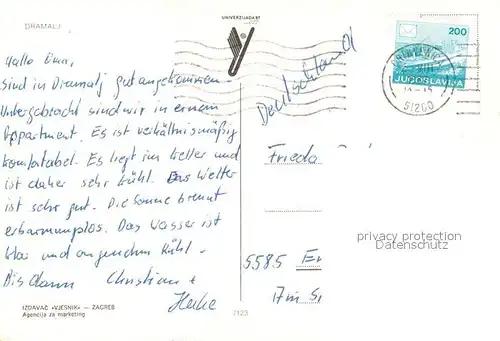 DRAMALJ
UNIVERZIJADA 87
200
JUGOSLAVIJA
51260
Deutschland
Hallo
sind in Dramalj gut angekommen.
Untergebracht sind wir in einem
Appartment. Es ist verhältnismäßig
komfortabel. Es liegt im Keller und
ist daher sehr kühl. Das Wetter
ist sehr gut. Die Sonne brennt
erbarmungslos. Das Wasser ist
klar und angenehm kühl.
Bis dann Christian +
Heike
Frieda
privacy protection
Datenschutz
5585
IZDAVAČ »VJESNIK« — ZAGREB
Agencija za marketing
7123